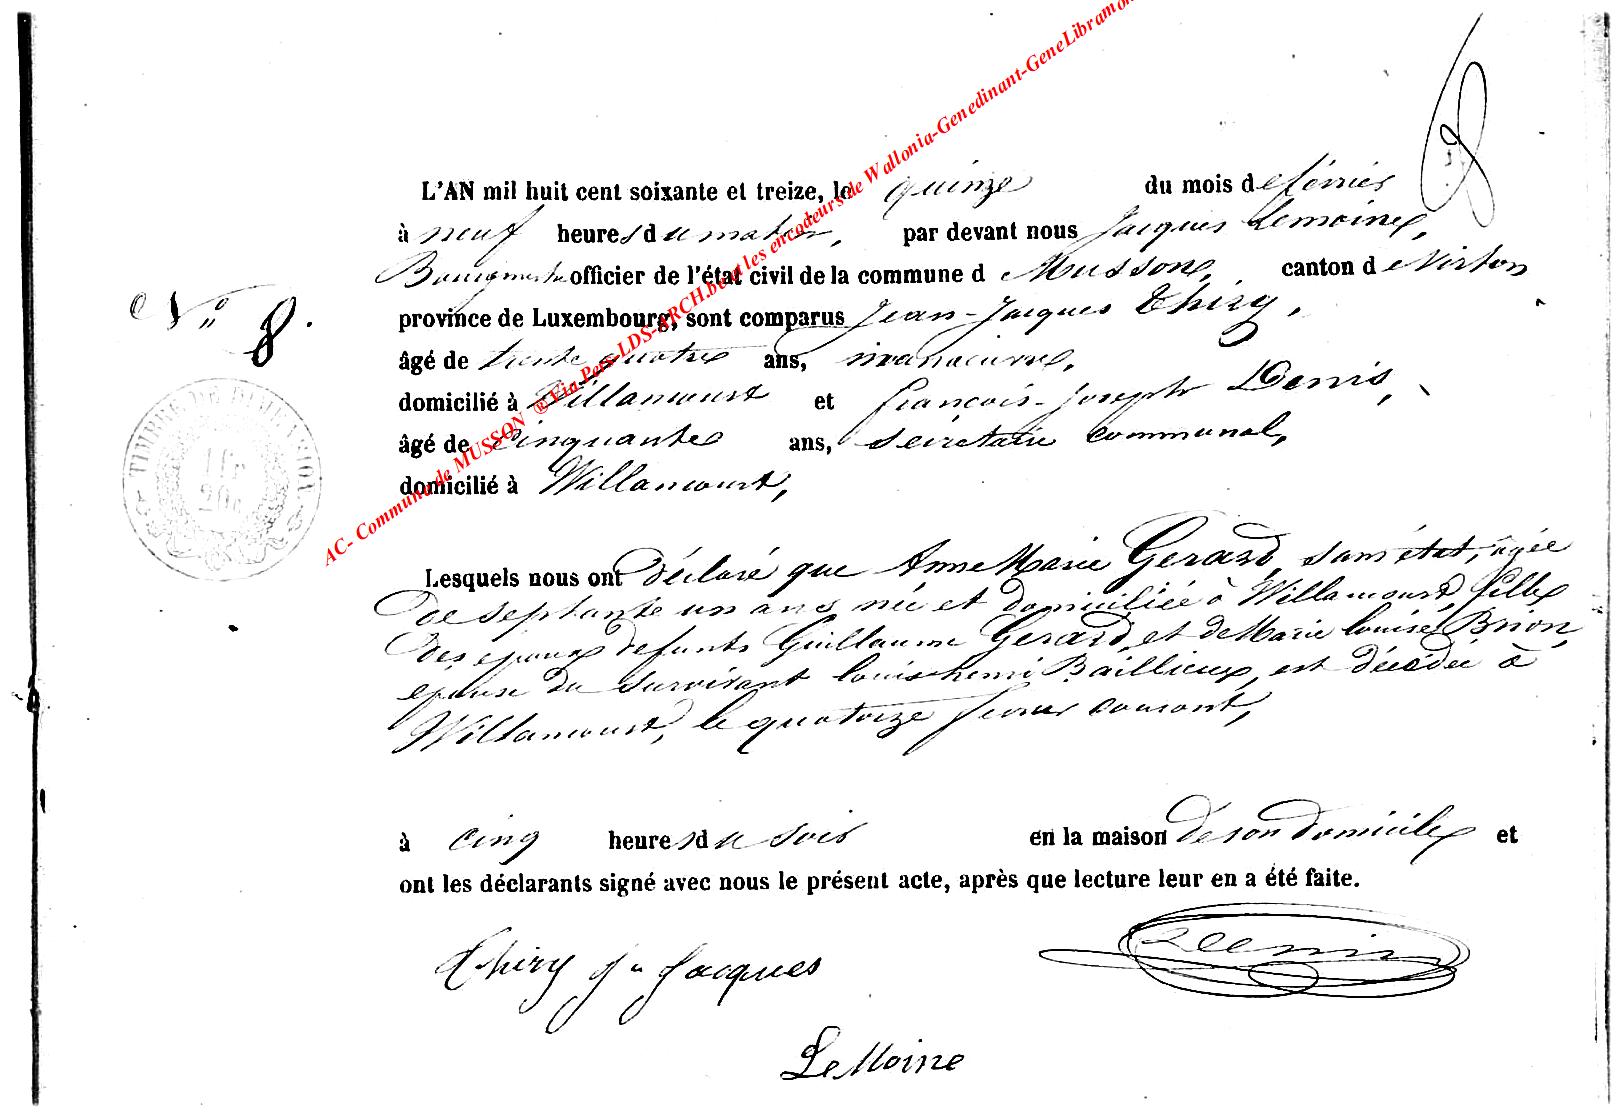 AC- Commune de MUSSON ® Via Pers-LDS-ARCH.be et les encodeurs de Wallonia-Genedinant-GeneLibramon
L'AN mil huit cent soixante et treize, le quinze du mois de février
à neuf heures du matin, par devant nous Jacques Lemoine,
Bourgmestre officier de l'état civil de la commune de Musson, canton de Virton
N° 8.
province de Luxembourg, sont comparus Jean-Jacques Thiry,
âgé de trente quatre ans, manœuvre,
domicilié à Willancourt et François-Joseph Denis,
âgé de Cinquante ans, Secrétaire communal,
domicilié à Willancourt,
TIMBRE DE DIMENSION
1 Fr
20c
Lesquels nous ont déclaré que Anne Marie Gerard, sans état, agée
de septante un ans née et domiciliée à Willancourt, fille
des epoux defunts Guillaume Gerard, et de Marie Louise Brion,
epouse du survivant Louis henri Baillieux, est décédée à
Willancourt, le quatorze fevrier courant,
à cinq heures du soir en la maison de son domicile et
ont les déclarants signé avec nous le présent acte, après que lecture leur en a été faite.
Thiry Jn Jacques
Denis
LeMoine